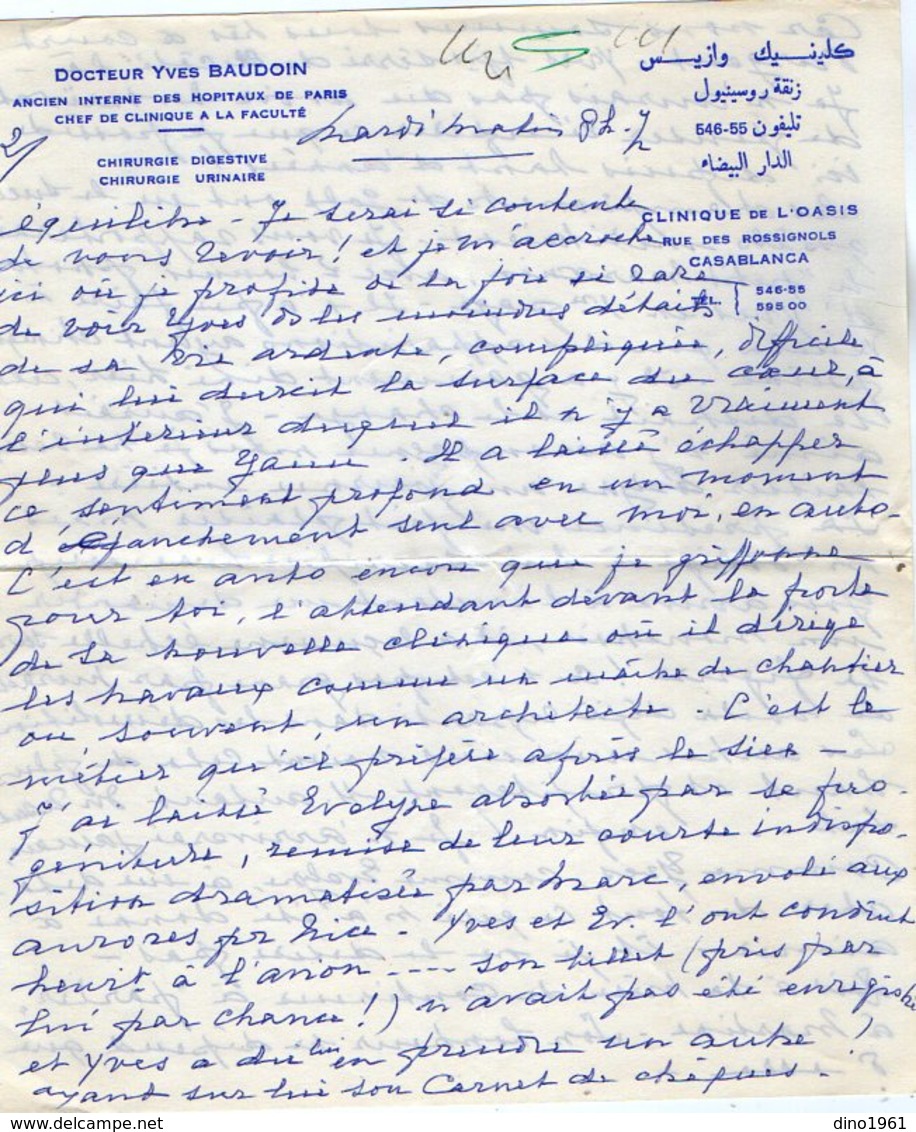 DOCTEUR YVES BAUDOIN
ANCIEN INTERNE DES HOPITAUX DE PARIS
CHEF DE CLINIQUE A LA FACULTÉ
CHIRURGIE DIGESTIVE
CHIRURGIE URINAIRE
كلينيك وازيس
زنقة روسينيول
تليفون 55-546
الدار البيضاء
CLINIQUE DE L'OASIS
RUE DES ROSSIGNOLS
CASABLANCA
TÉL. 546-55
595 00
2/
Mardi matin
équilibre - Je serai si contente
de vous revoir ! et je m'accroche
ici où je profite de la joie si rare
de voir Yves ds les moindres détails
de sa vie ardente, compliquée, difficile
qui lui durcit la surface du cœur, à
l'intérieur duquel il n'y a vraiment
plus que . Il a laissé échapper
ce sentiment profond en un moment
d'épanchement seul avec moi, en auto -
C'est en auto encore que je griffonne
pour toi, l'attendant devant la porte
de la nouvelle clinique où il dirige
les travaux comme un maître de chantier
ou souvent, un architecte. C'est le
métier qu'il préfère après le sien -
J'ai laissé Evelyne absorbée par sa pro-
géniture, remise de leur courte indispo-
sition dramatisée par Marc, envolé aux
aurores pr Nice. Yves et Ev. l'ont conduit
heurt à l'avion .... son billet (pris par
lui par chance !) n'avait pas été enregistré
et Yves a dû lui en prendre un autre !
ayant sur lui son Carnet de chèques.
dino1961